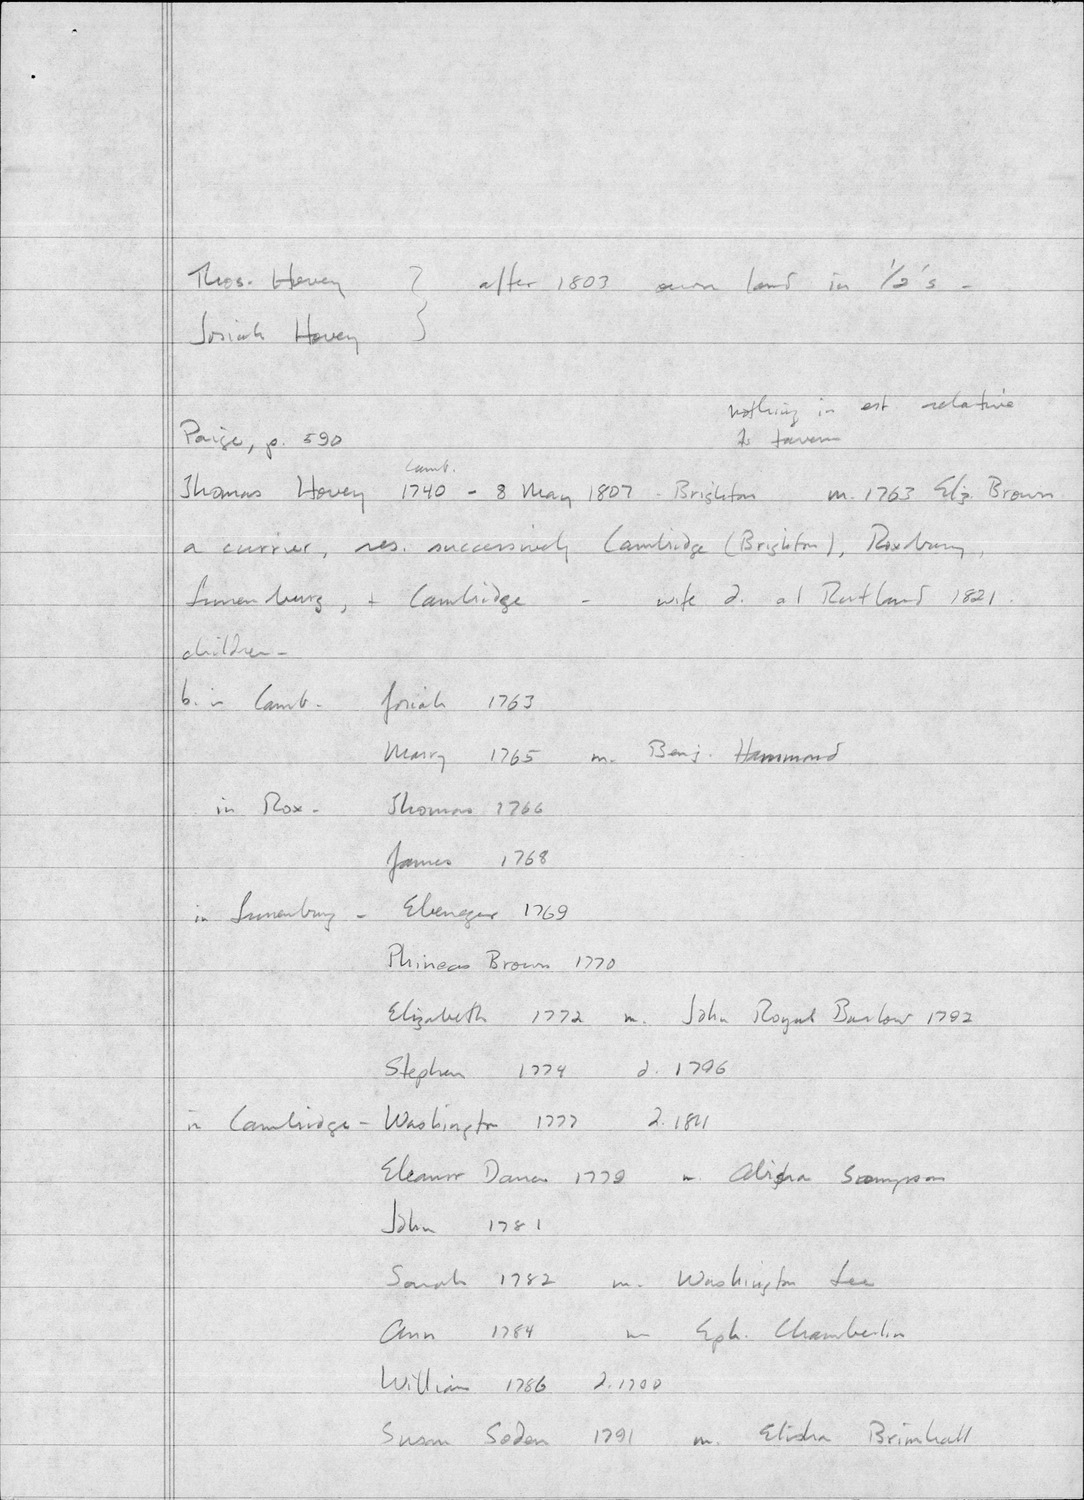 Thos. Hovey } after 1803 own land in 1/2's -
Josiah Hovey }
nothing in est. relative
to tavern
Paige, p. 590
Camb.
Thomas Hovey 1740 - 8 May 1807 - Brighton m. 1763 Eliz. Brown
a currier, res. successively Cambridge (Brighton), Roxbury,
Lunenburg, + Cambridge - wife d. at Rutland 1821.
children -
b. in Camb. - Josiah 1763
Mary 1765 m. Benj. Hammond
in Rox - Thomas 1766
James 1768
in Lunenburg - Ebenezer 1769
Phineas Brown 1770
Elizabeth 1772 m. John Royal Barlow 1792
Stephen 1774 d. 1796
in Cambridge - Washington 1777 d. 1811
Eleanor Dana 1779 m. Sampson
John 1781
Sarah 1782 m. Washington Lee
Ann 1784 m Eph. Chamberlin
William 1786 d.
Susan Soden 1791 m. Elisha Brimhall